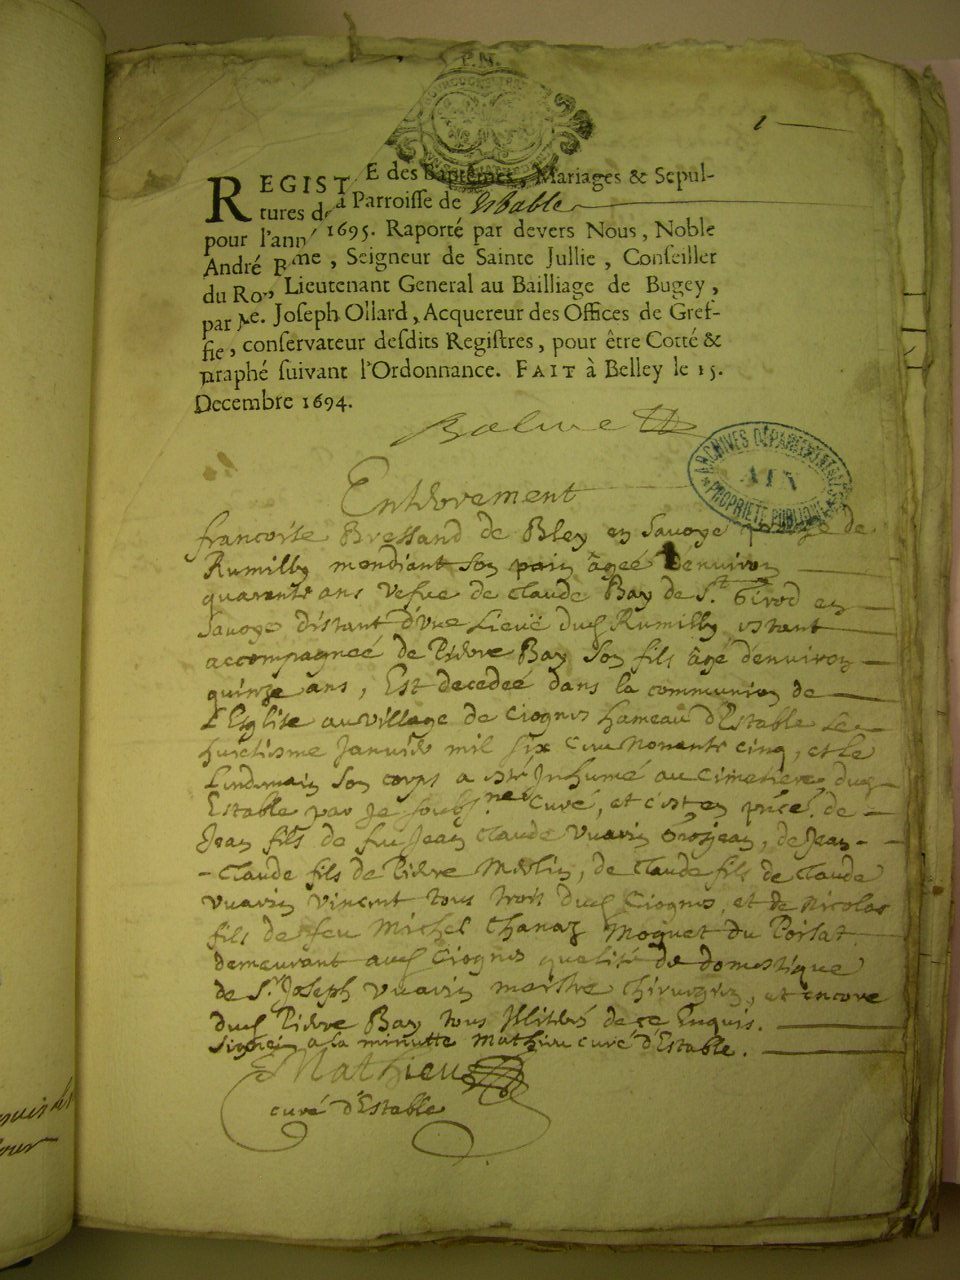 P.N.
1
REGISTRE des Baptêmes, Mariages & Sepul-
tures de la Parroisse de Estable
pour l'année 1695. Raporté par devers Nous, Noble
André , Seigneur de Sainte Jullie, Conseiller
du Roy, Lieutenant General au Bailliage de Bugey,
par Me. Joseph Ollard, Acquereur des Offices de Gref-
fie, conservateur desdits Registres, pour être Cotté &
paraphé suivant l'Ordonnance. FAIT à Belley le 15.
Decembre 1694.
ARCHIVES DÉPARTEMENTALES
AIN
PROPRIÉTÉ PUBLIQUE
Enterrement
francoise Bressand de Bloy en Savoye de
Rumilly mendiant son pain âgeé denviron
quarante ans vefve de Claude Bay de St Girod en
Savoye distant d'une Lieuë dud Rumilly, estant
accompagneé de Pierre Bay son fils âgé d'environ
quinze ans, Est decedeé dans la communion de
L'Eglise au village de Ciognis hameau d'Estable Le
huictiesme Janvier mil six cens nonante cinq, et le
Lendemain son corps a esté Inhumé au cimetiere dud
Estable par Je soubs.né Curé, et c'est en prñce. de
Jean fils de feu Jean Claude Vuarin Grosjean, de Jean-
-Claude fils de Pierre Merlin, de Claude fils de Claude
Vuarin Vincent tous trois dud Ciognis, et de Nicolas
fils de feu Michel Chanaz Moquet du Poisat
demeurant aud Ciognis qualité de domestique
de Sr Joseph Vuarin maistre Chirurgien, et encore
dud Pierre Bay tous Illitéres de ce Enquis.
Signé a la minutte Mathieu curé d'Estable.
Mathieu
curé d'Estable